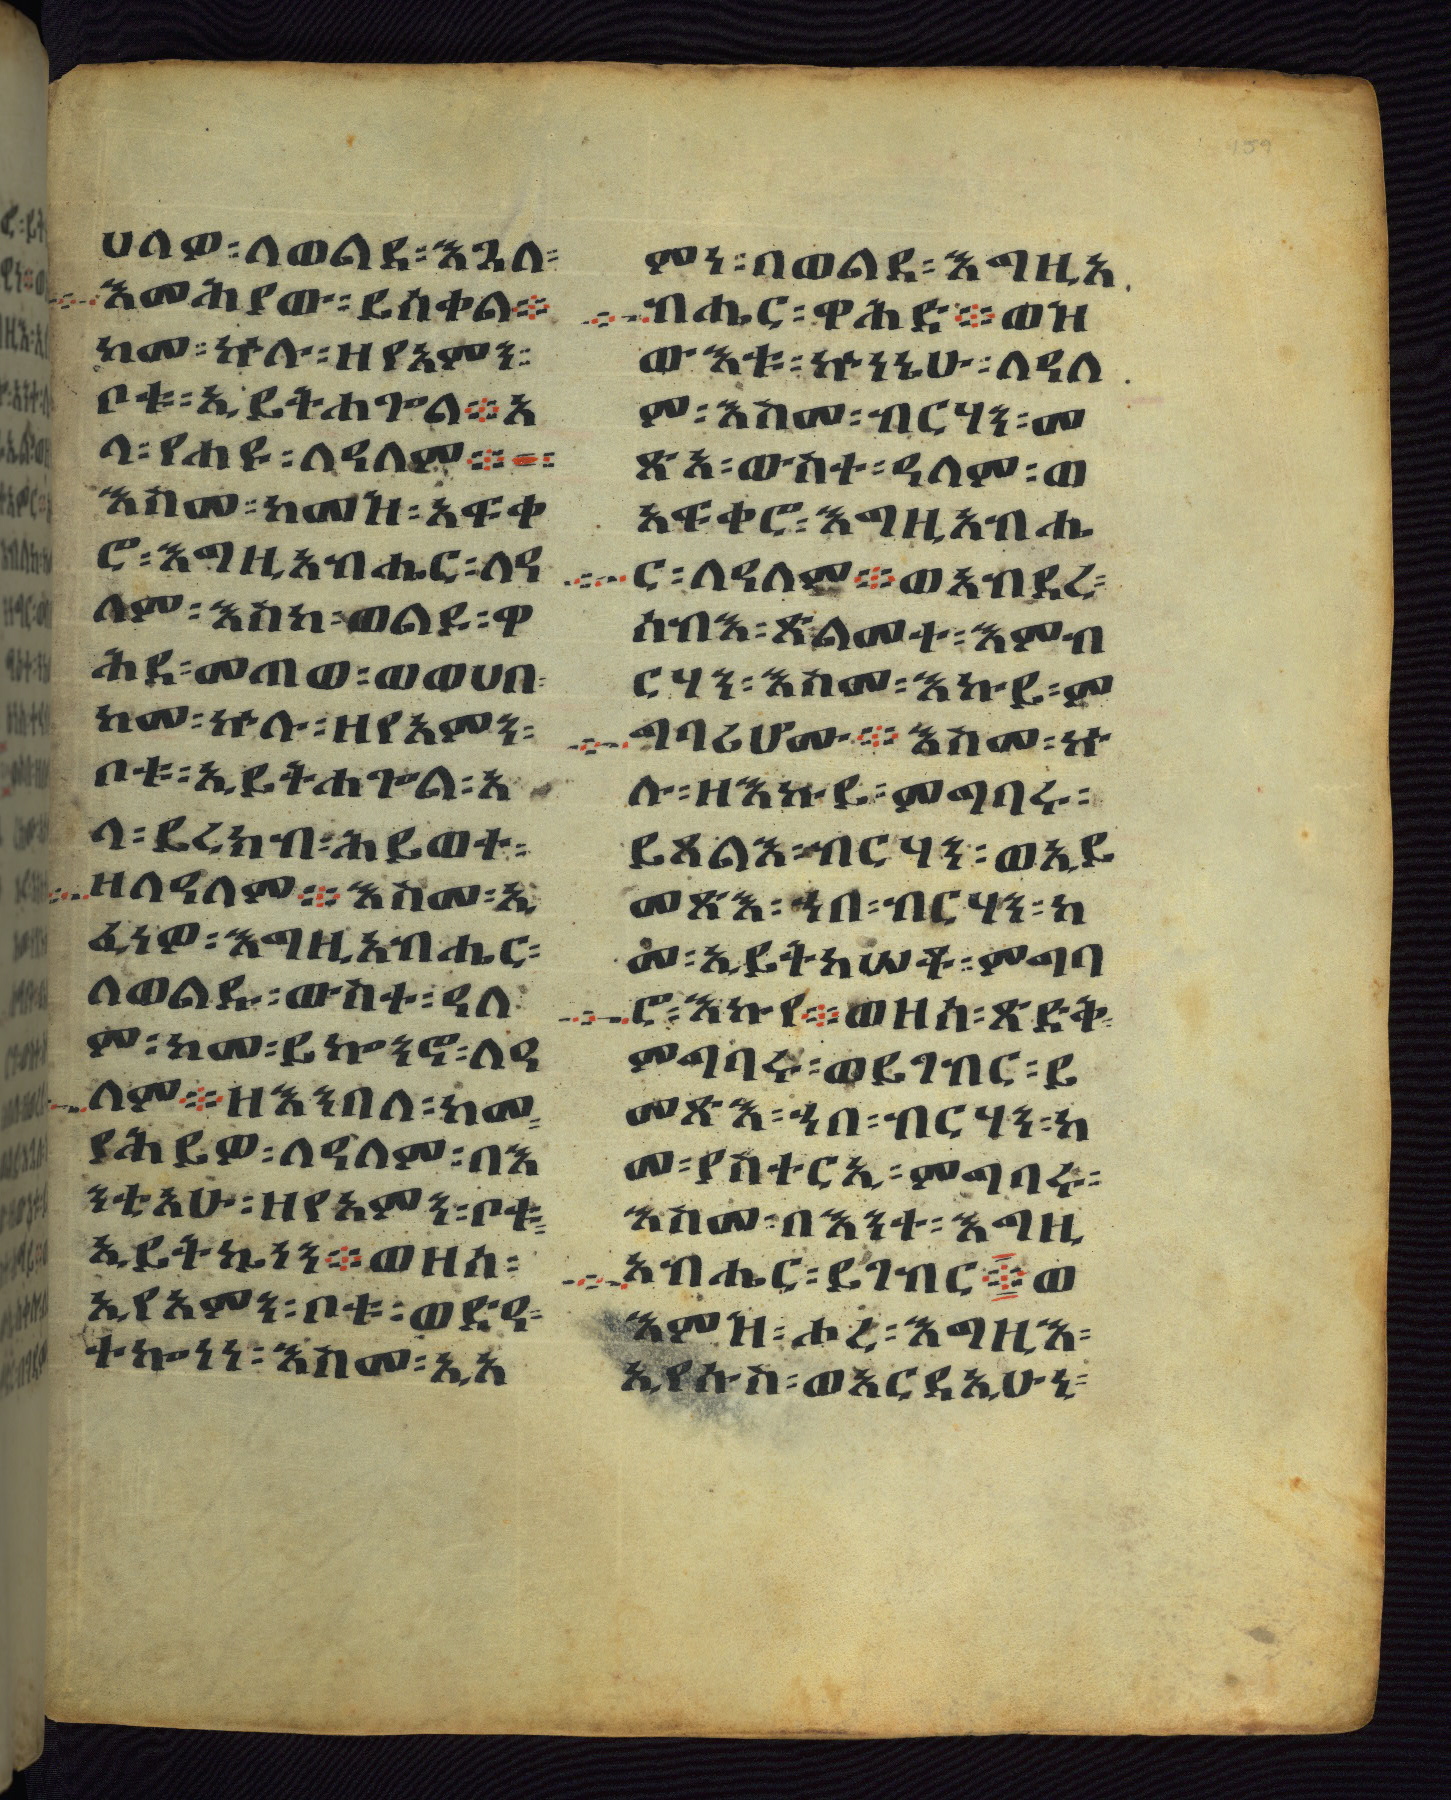 159
ሀለዎ፡ለወልደ፡እጓለ፡
እመሕያው፡ይሰቀል፨
ከመ፡ኵሉ፡ዘየአምን፡
ቦቱ፡ኢይትሐጐል፨አ
ላ፡የሐዩ፡ለዓለም፨
እስመ፡ከመዝ፡አፍቀ
ሮ፡እግዚአብሔር፡ለዓ
ለም፡እስከ፡ወልደ፡ዋ
ሕደ፡መጠወ፡ወወሀበ፡
ከመ፡ኵሉ፡ዘየአምን፡
ቦቱ፡ኢይትሐጐል፡አ
ላ፡ይረክብ፡ሕይወተ፡
ዘለዓለም፨እስመ፡ኢ
ፈነዎ፡እግዚአብሔር፡
ለወልዱ፡ውስተ፡ዓለ
ም፡ከመ፡ይኰንኖ፡ለዓ
ለም፨ዘእንበለ፡ከመ፡
ያሕይዎ፡ለዓለም፡በእ
ንቲአሁ፡ዘየአምን፡ቦቱ፡
ኢይትኴነን፨ወዘሰ፡
ኢየአምን፡ቦቱ፡ወድዓ፡
ተኰነነ፡እስመ፡ኢአ
ምነ፡በወልደ፡እግዚአ
ብሔር፡ዋሕድ፨ወዝ
ውእቱ፡ኵነኔሁ፡ለዓለ
ም፡እስመ፡ብርሃን፡መ
ጽአ፡ውስተ፡ዓለም፡ወ
አፍቀሮ፡እግዚአብሔ
ር፡ለዓለም፨ወአብደረ፡
ሰብእ፡ጽልመተ፡እምብ
ርሃን፡እስመ፡እኩይ፡ም
ግባሪሆሙ፨እስመ፡ኵ
ሉ፡ዘእኩይ፡ምግባሩ፡
ይጸልእ፡ብርሃን፡ወኢይ
መጽእ፡ኀበ፡ብርሃን፡ከ
መ፡ኢይትከሠቶ፡ምግባ
ሮ፡እኩየ፨ወዘሰ፡ጽድቅ፡
ምግባሩ፡ወይገብር፡ይ
መጽእ፡ኀበ፡ብርሃን፡ከ
መ፡ያስተርኢ፡ምግባሩ፡
እስመ፡በእንተ፡እግዚ
አብሔር፡ይገብር፨ወ
እምዝ፡ሖረ፡እግዚእ፡
ኢየሱስ፡ወአርዳኢሁኒ፡